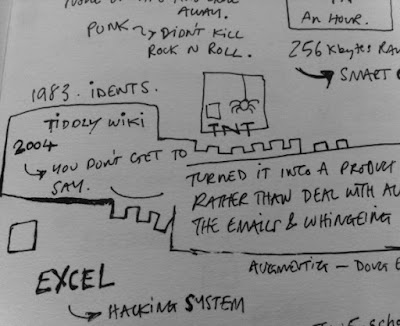 AWAY.
PUNK → DIDN'T KILL
ROCK N ROLL.
AN HOUR.
256 Kbytes RA
→ SMART
1983. iDENTS.
TiDDLY WiKi
2004
→ YOU DON'T GET TO
SAY.
TNT
TURNED IT INTO A PRODUCT
RATHER THAN DEAL WITH AL
THE EMAILS & WHINGEING
AUGMENTIG — DOUG E
EXCEL
→ HACKING SYSTEM